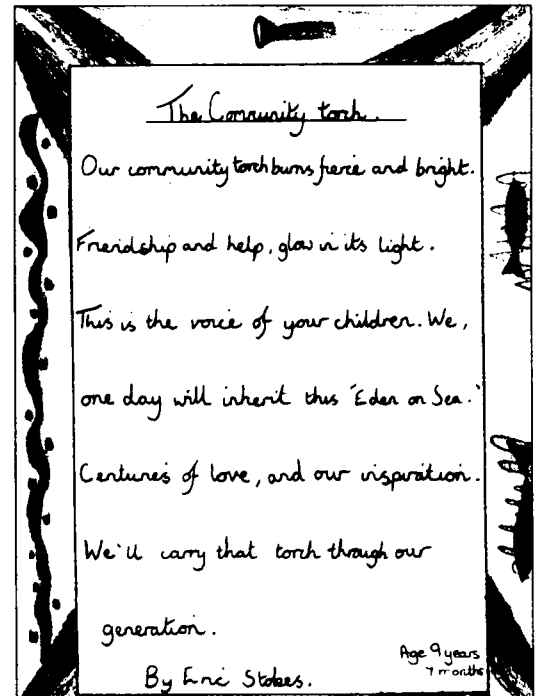 The Community torch.
Our community torch burns fierce and bright.
Friendship and help, glow in its light.
This is the voice of your children. We,
one day will inherit this 'Eden on Sea.'
Centuries of love, and our inspiration.
We'll carry that torch through our
generation.
Age 9 years
7 months
By Eric Stokes.